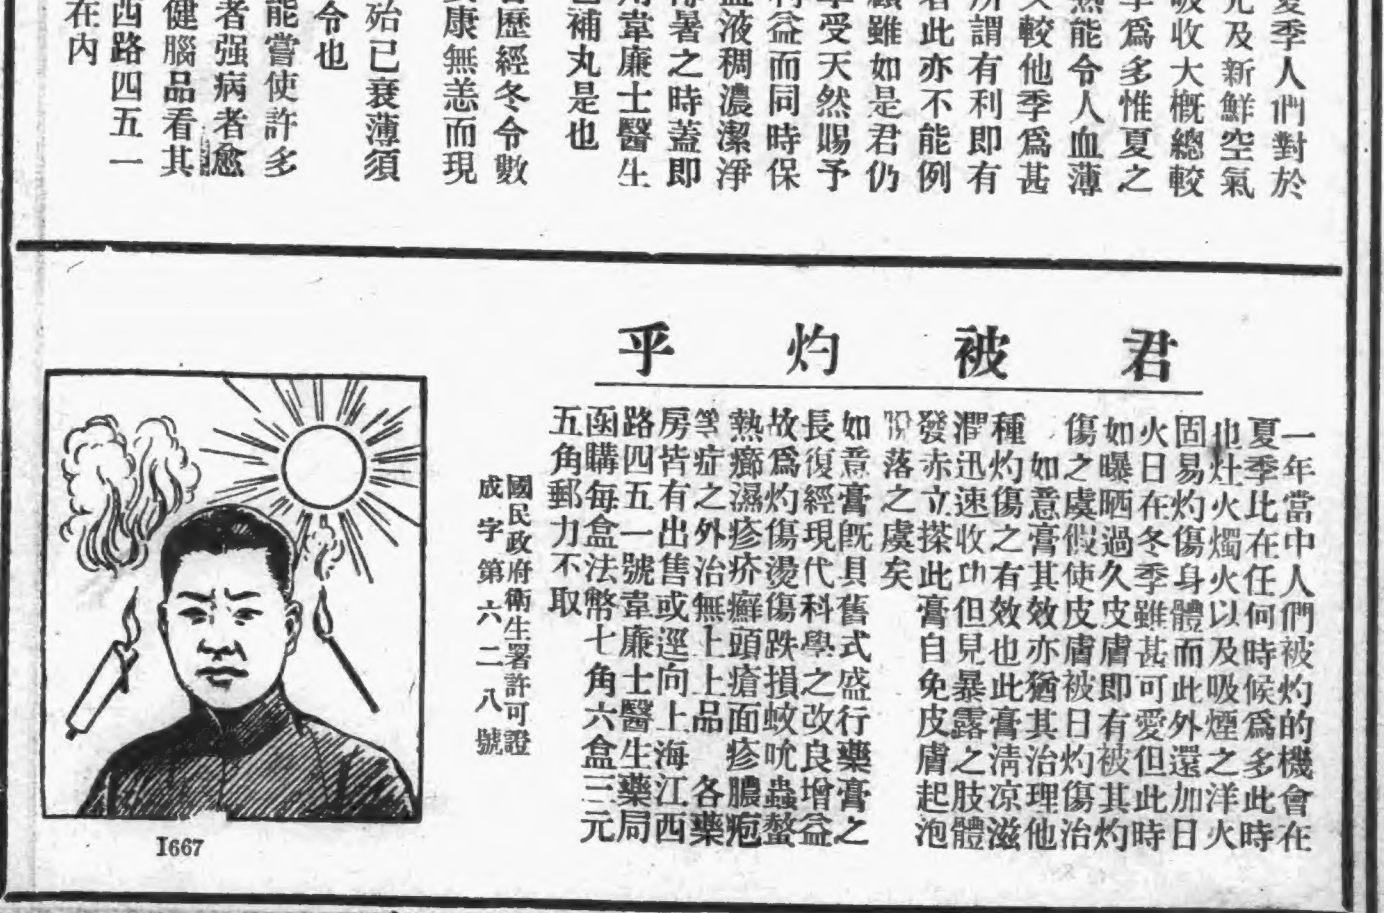 夏季人們對於
及新鮮空氣
吸收大概總較
季爲多惟夏之
熱能令人血薄
較他季爲甚
所謂有利即有
若此亦不能例
顧雖如是君仍
享受天然賜予
利益而同時保
血液稠濃潔淨
暑之時蓋即
用韋廉士醫生
補丸是也
歷經冬令數
康無恙而現
殆已衰薄須
令也
能嘗使許多
者强病者愈
健腦品看其
西路四五一
在內
君被灼乎
一年當中人們被灼的機會在
夏季此在任何時候爲多此時
也灶火燭火以及吸煙之洋火
固易灼傷身體而此外還加日
火日在冬季雖甚可愛但此時
如曝晒過久皮膚即有被其灼
傷之虞假使皮膚被日灼傷治
如意膏其效亦猶其治理他
種灼傷之有效也此膏淸凉滋
潤迅速收功但見暴露之肢體
發赤立搽此膏自免皮膚起泡
脫落之虞矣
如意膏旣具舊式盛行藥膏之
長復經現代科學之改良增益
故爲灼傷燙傷跌損蚊吮蟲螫
熱癤濕疹疥癬頭瘡面疹膿疱
等症之外治無上上品 各藥
房皆有出售或逕向上海江西
路四五一號韋廉士醫生藥局
函購每盒法幣七角六盒三元
五角郵力不取
國民政府衛生署許可證
成字第六二八號
1667